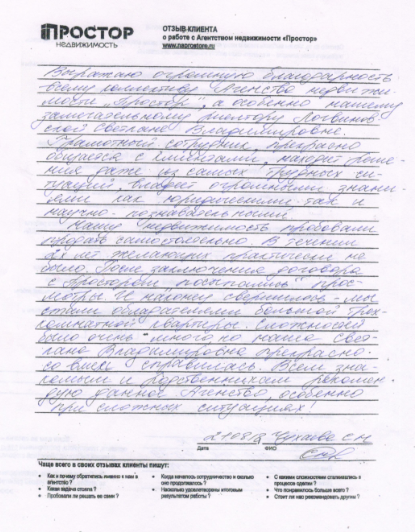 ПРОСТОР
НЕДВИЖИМОСТЬ
ОТЗЫВ КЛИЕНТА
о работе с Агентством недвижимости «Простор»
www.naprostore.ru
Выражаю огромную благодарность
всему коллективу Агенства недвижи-
мости „Простор", а особенно нашему
замечательному риэлтору Логвинов-
ской Светлане Владимировне.
Грамотный сотрудник, прекрасно
общается с клиентами, находит реше-
ния даже из самых трудных си-
туаций, владеет огромными знани-
ями как юридическими так и
научно-познавательными.
Нашу недвижимость пробовали
продать самостоятельно. В течении
2х лет желающих практически не
было. После заключения договора
с Простором „посыпались" прос-
мотры. И наконец свершилось - мы
стали обладателями большой трех-
комнатной квартиры. Сложностей
было очень много, но наша Свет-
лана Владимировна прекрасно
со всем справилась. Всем зна-
комым и родственникам рекомен-
дую данное Агенство, особенно
при сложных ситуациях!
Дата
ФИО
Чаще всего в своих отзывах клиенты пишут:
• Как и почему обратились именно к нам в агентство?
• Какая задача стояла?
• Пробовали ли решать ее сами?
• Когда началось сотрудничество и сколько оно продолжалось?
• Насколько удовлетворены итоговым результатом работы?
• С какими сложностями сталкивались в процессе сделки?
• Что понравилось больше всего?
• Стоит ли нас рекомендовать другим?